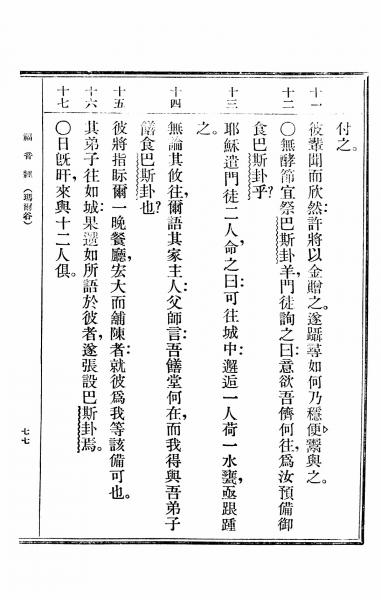 付之。
十一 彼輩聞而欣然許將以金贈之。遂躡尋如何乃穩便鬻與之。
十二 〇無酵節宜祭巴斯卦羊，門徒詢之曰：意欲吾儕何往，爲汝預備御
食巴斯卦乎？
十三 耶穌遣門徒二人，命之曰：可往城中：邂逅一人荷一水甕，亟跟踵
之。
十四 無論其攸往，爾語其家主人：父師言：吾饍堂何在，而我得與吾弟子
饍食巴斯卦也？
十五 彼將指眎爾一晚餐廳，宏大而舖陳者：就彼爲我等該備可也。
十六 其弟子往如城果遘如所語於彼者，遂張設巴斯卦焉。
十七 〇日旣旰，來與十二人俱。
福音經 （瑪爾谷）
七七